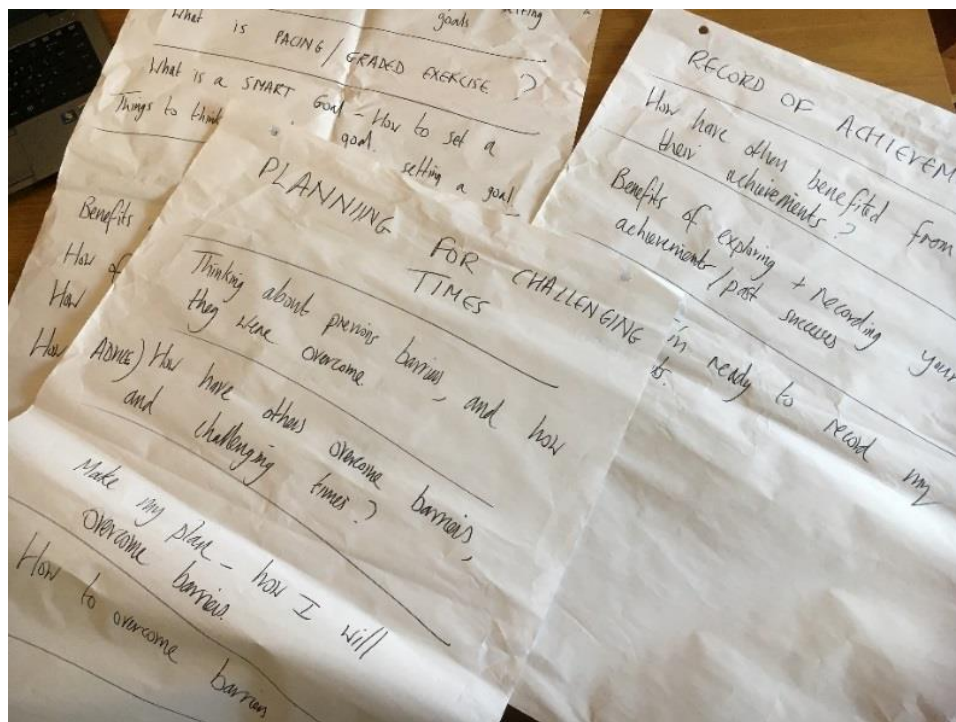 What
goals
is PACING / GRADED EXERCISE ?
What is a SMART Goal - How to set a
goal.
Things to think
setting a goal
Benefits
How of
How
How
PLANNING FOR CHALLENGING
TIMES
Thinking about previous barriers, and how
they were overcome
ADVICE) How have others overcome barriers,
and challenging times?
Make my plan - how I will
overcome barriers.
How to overcome barriers
RECORD OF ACHIEVEM
How have others benefited from
their achievements?
Benefits of exploring + recording your
achievements/past successes
ready to record my